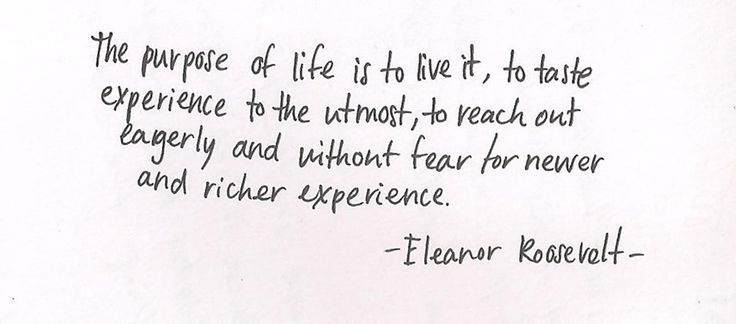 The purpose of life is to live it, to taste
experience to the utmost, to reach out
eagerly and without fear for newer
and richer experience.
-Eleanor Roosevelt-